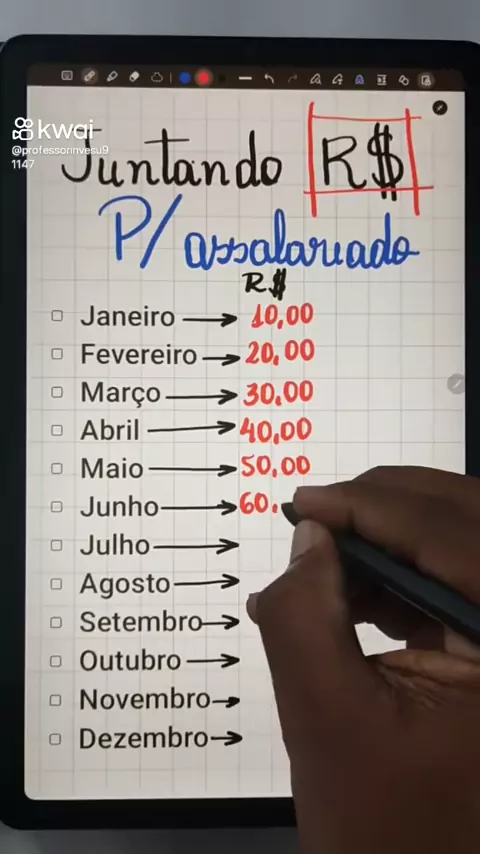 kwai
@professorinvesu9
1147
Juntando R$
P/ assalariado
R$
Janeiro → 10,00
Fevereiro → 20,00
Março → 30,00
Abril → 40,00
Maio → 50,00
Junho → 60.
Julho →
Agosto →
Setembro →
Outubro →
Novembro →
Dezembro →